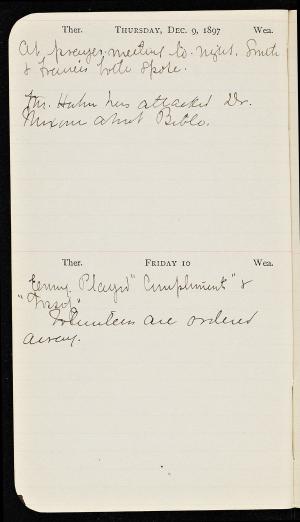 Ther. THURSDAY, DEC. 9, 1897 Wea.
At prayer meeting to-night. Smith
& Francis both spoke.
Mr. Hahn has attacked Dr.
about Bible.
Ther. FRIDAY 10 Wea.
Played "Compliment" &
Volunteers are ordered
away.